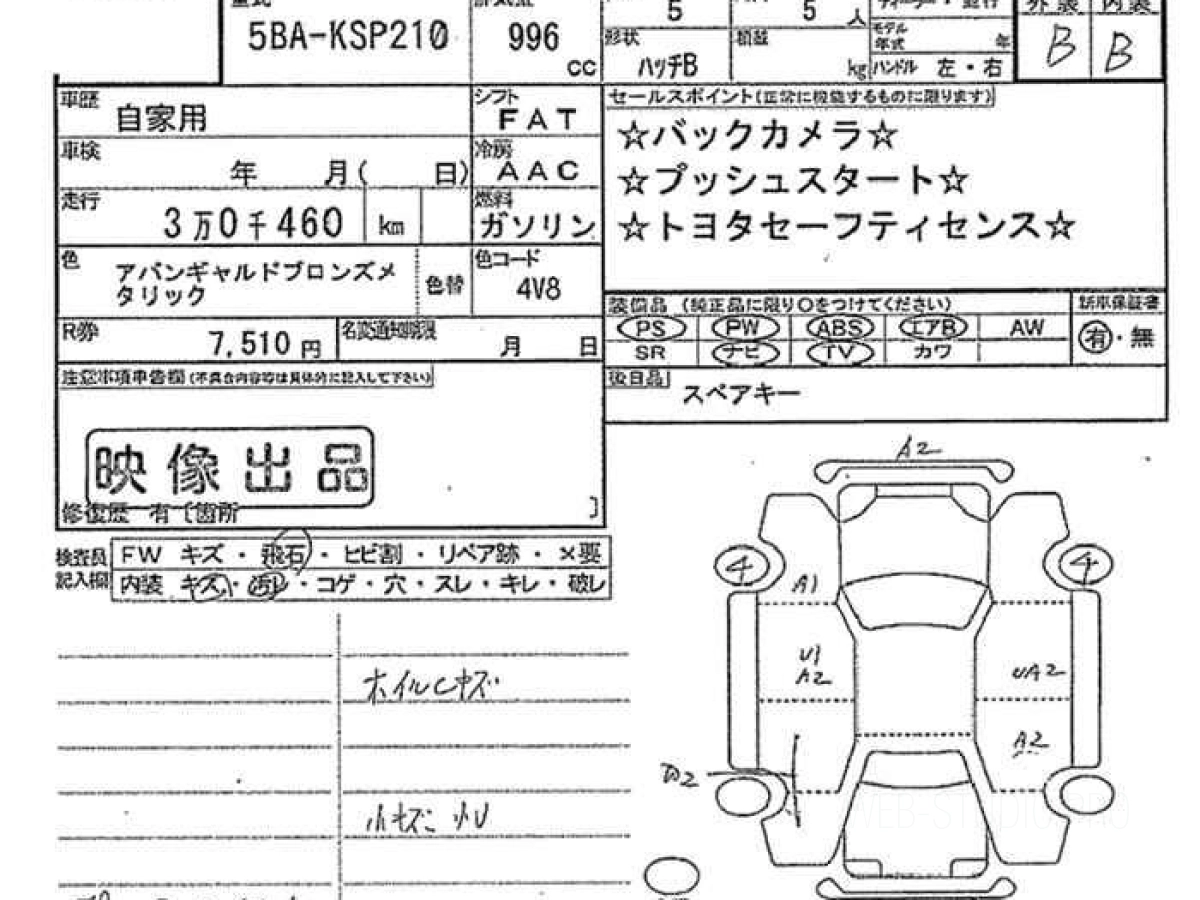 型式
5BA-KSP210
996
cc
5
5
人
形状
ハッチB
積載
kg
モデル
年式
年
ハンドル 左・右
外装 内装
B B
車歴
自家用
シフト
FAT
車検
年 月( 日)
冷房
AAC
走行
3万0千460 km
燃料
ガソリン
色
アバンギャルドブロンズメ
タリック
色替
色コード
4V8
R券
7,510 円
名変通知期限
月 日
セールスポイント(正常に機能するものに限ります)
☆バックカメラ☆
☆プッシュスタート☆
☆トヨタセーフティセンス☆
装備品 (純正品に限り○をつけてください)
PS PW ABS エアB AW
SR ナビ TV カワ
新車保証書
有・無
後日品
スペアキー
注意事項申告欄(不具合内容等は具体的に記入して下さい)
映像出品
修復歴 有〔箇所 〕
検査員
記入欄
FW キズ・飛石・ヒビ割・リペア跡・×要
内装 キズ・汚れ・コゲ・穴・スレ・キレ・破レ
ホイルCキズ
小キズ 小U
A2
4
4
A1
U1
A2
UA2
A2